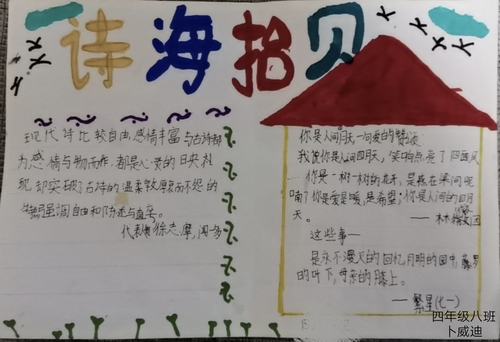 诗海拾贝
现代诗比较自由感情丰富与古诗都
为感情与物而作,都是心爱的日来社
现,却突破了古诗的温柔敦厚哀而不怨的
特点强调自由和陈述与直率。
代表徐志摩,闻一多
你是人间四月天一句爱的赞颂
我说你是人间四月天,笑响点亮了四面风
你是一树一树的花开,是燕在梁间呢
喃,你是爱是暖,是希望,你是人间的四月
天。 —林徽因
这些事—
是永不漫灭的回忆月明的园中,藤萝
的叶下,母亲的膝上。
—繁星(七一)
四年级八班
卜威迪